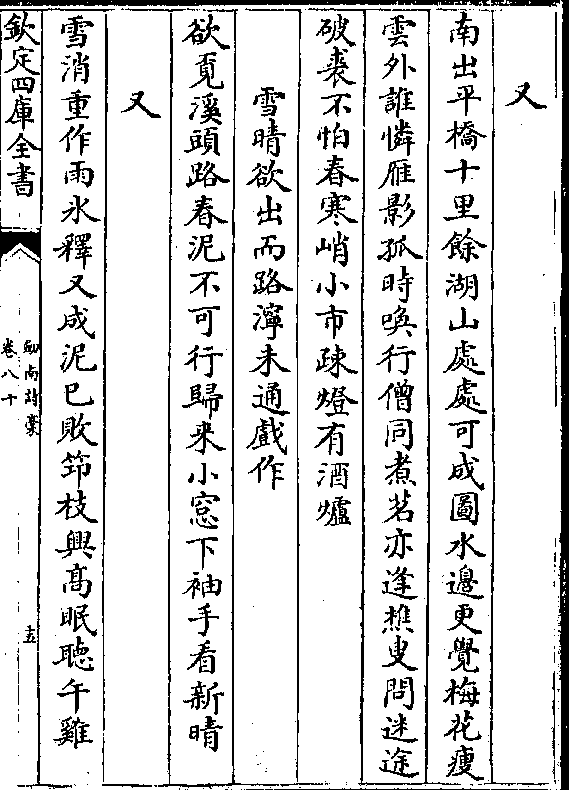 又
南出平橋十里餘湖山處處可成圖水邊更覺梅花瘦
雲外誰憐雁影孤時喚行僧同煮茗亦逢樵叟問迷途
破裘不怕春寒峭小市疎燈有酒爐
雪晴欲出而路濘未通戲作
欲覓溪頭路春泥不可行歸来小窓下袖手看新晴
又
雪消重作雨氷釋又成泥已敗笻枝興髙眠聴午雞
欽定四庫全書
劒南詩藁
卷八十
十五